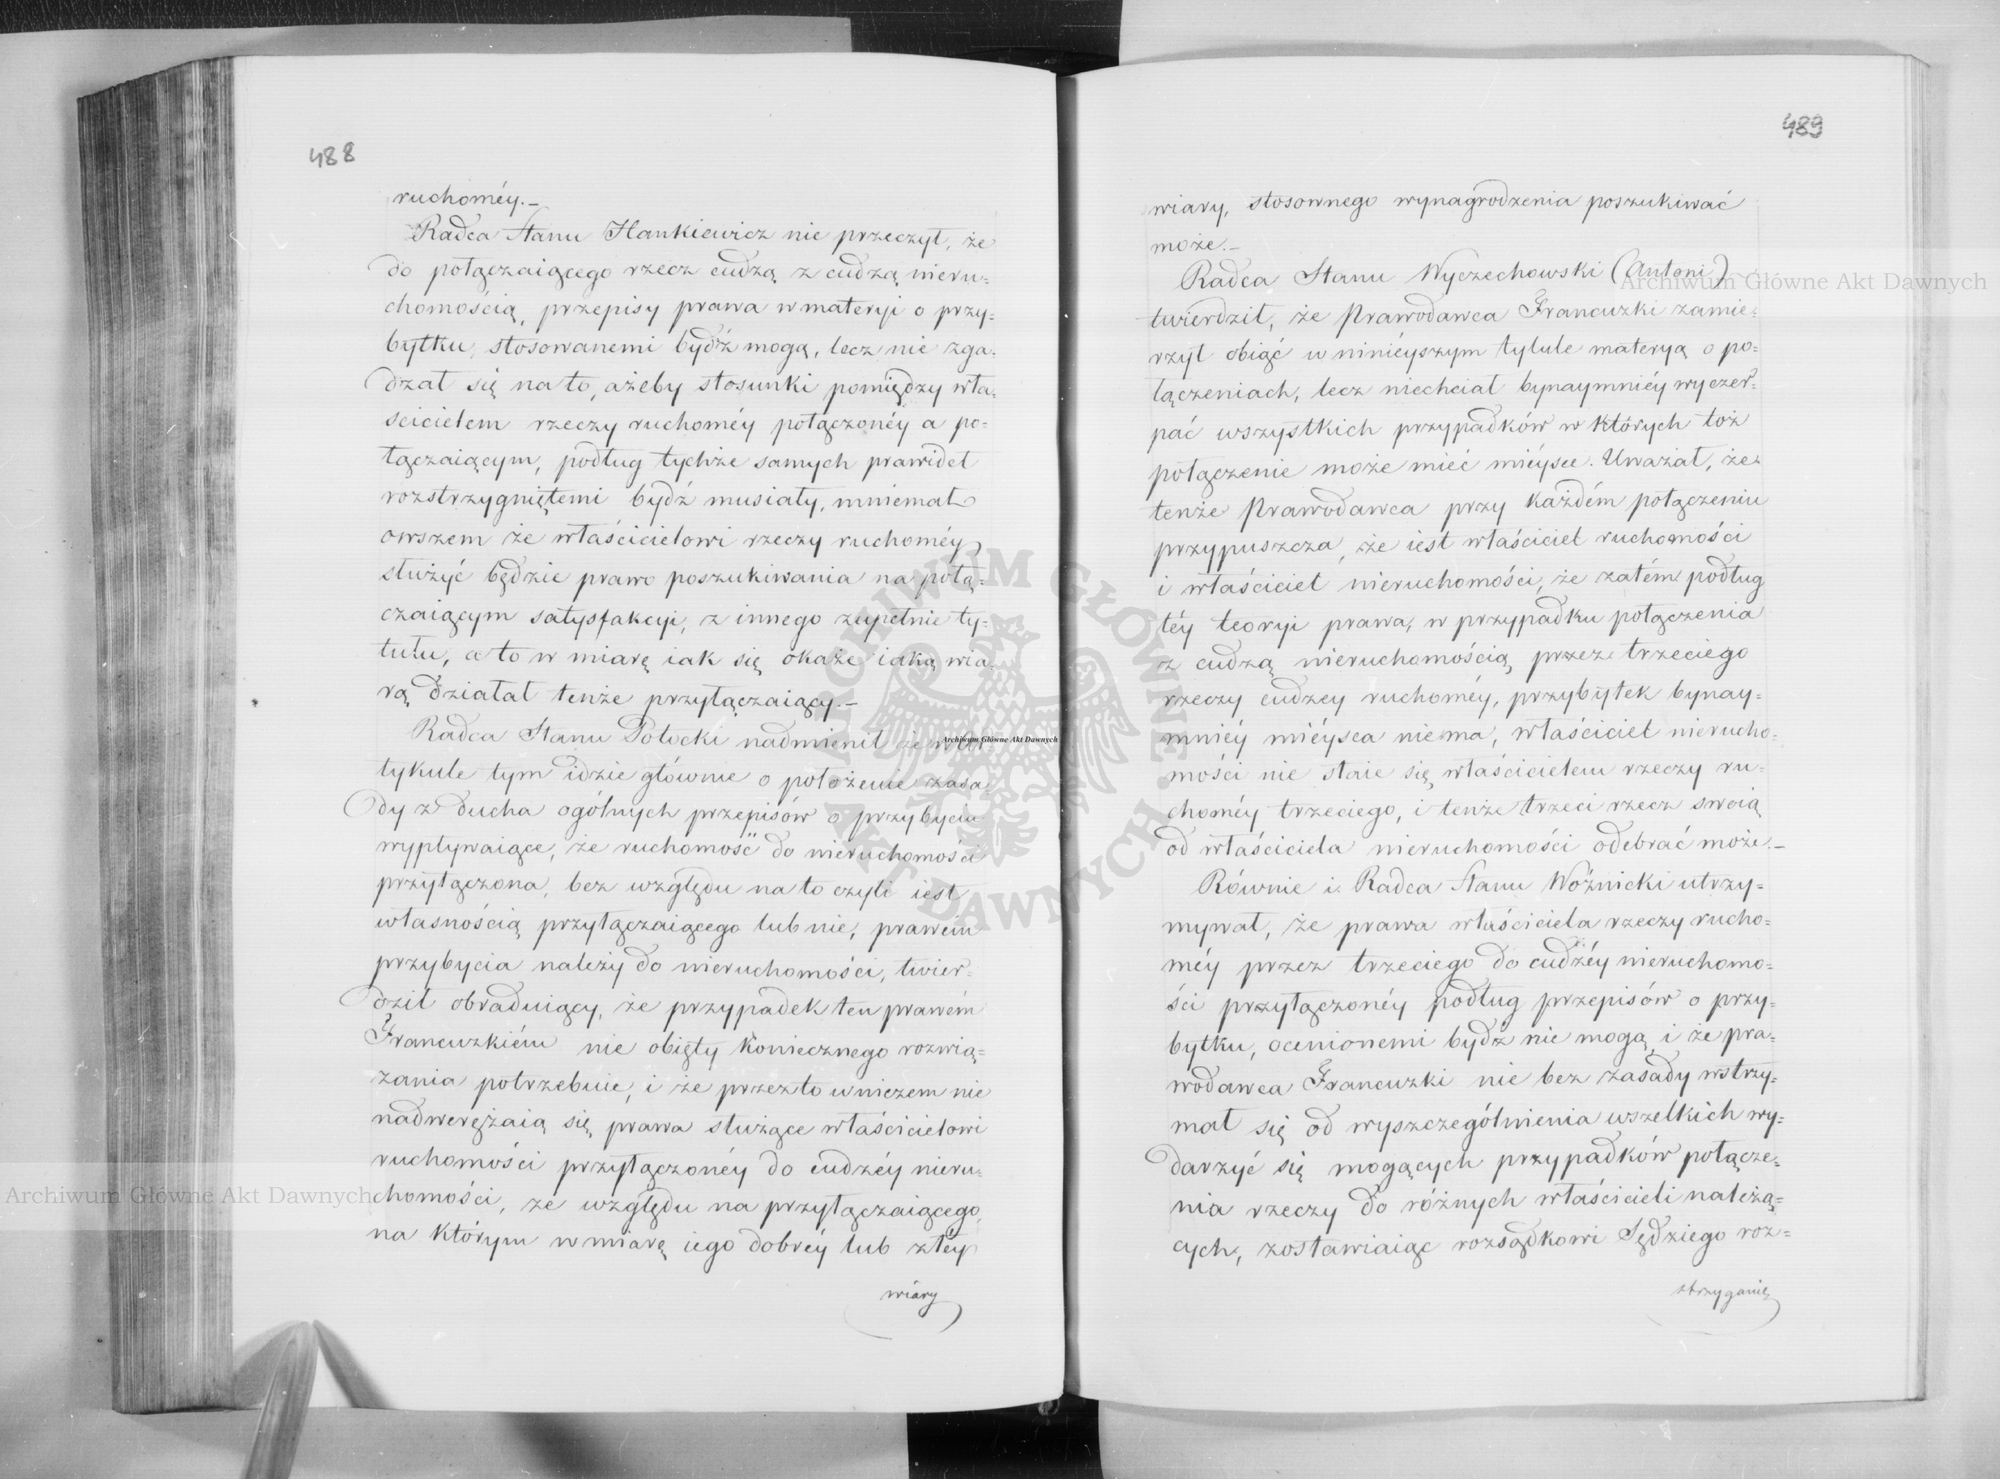 488
ruchoméy.—
Radca Stanu Hankiewicz nie przeczył, że
do połączaiącego rzecz cudzą z cudzą nieru=
chomością, przepisy prawa w materyi o przy=
bytku, stosowanemi bydź mogą, lecz nie zga=
dzał się na to, ażeby stosunki pomiędzy wła=
scicielem rzeczy ruchoméy połączonéy a po=
łączaiącym, podług tychże samych prawideł
rozstrzygniętemi bydź musiały, mniemał
owszem że właścicielowi rzeczy ruchoméy
służyć będzie prawo poszukiwania na połą=
czaiącym satysfakcyi, z innego zupełnie ty=
tułu, a to w miarę iak się okaże iaką wia=
rą działał tenże przyłączaiący.—
Radca Stanu Potocki nadmienił że w ar=
tykule tym idzie głównie o położenie zasa=
dy z ducha ogólnych przepisów o przybyciu
wypływaiące, że ruchomość do nieruchomości
przyłączona, bez względu na to czyli iest
własnością przyłączaiącego lub nie, prawem
przybycia należy do nieruchomości, twier=
dził obraduiący, że przypadek ten prawém
Francuzkiém nie obięty koniecznego rozwią=
zania potrzebuie, i że przez to w niczem nie
nadweręźaią się prawa służące właścicielowi
ruchomości przyłączonéy do cudzéy nieru=
chomości, ze względu na przyłączaiącego,
na którym w miarę iego dobréy lub złéy
wiary
489
wiary, stosownego wynagrodzenia poszukiwać
może.—
Radca Stanu Wyczechowski (Antoni)
twierdził, że Prawodawca Francuzki zamie=
rzył obiąć w niniéyszym tytule materyą o po=
łączeniach, lecz niechciał bynaymniéy wyczer=
pać wszystkich przypadków w których toż
połączenie może mieć miéysce. Uważał, że
tenże Prawodawca przy każdém połączeniu
przypuszcza, że iest właściciel ruchomości
i właściciel nieruchomości, że zatém podług
téy teoryi prawa, w przypadku połączenia
z cudzą nieruchomością, przez trzeciego
rzeczy cudzey ruchoméy, przybytek bynay=
mniéy miéysca niema, właściciel nierucho=
mości nie staie się właścicielem rzeczy ru=
choméy trzeciego, i tenże trzeci rzecz swoią
od właściciela nieruchomości odebrać może.—
Równie i Radca Stanu Woźnicki utrzy=
mywał, że prawa właściciela rzeczy rucho=
méy przez trzeciego do cudzéy nieruchomo=
ści przyłączonéy podług przepisów o przy=
bytku, ocenionemi bydź nie mogą, i że pra=
wodawca Francuzki nie bez zasady wstrzy=
mał się od wyszczególnienia wszelkich wy=
darzyć się mogących przypadków połącze=
nia rzeczy do różnych właścicieli należą=
cych, zostawiaiąc rozsądkowi Sędziego roz=
strzyganie
Archiwum Główne Akt Dawnych
Archiwum Główne Akt Dawnych
Archiwum Główne Akt Dawnych
ARCHIWUM GŁÓWNE AKT DAWNYCH